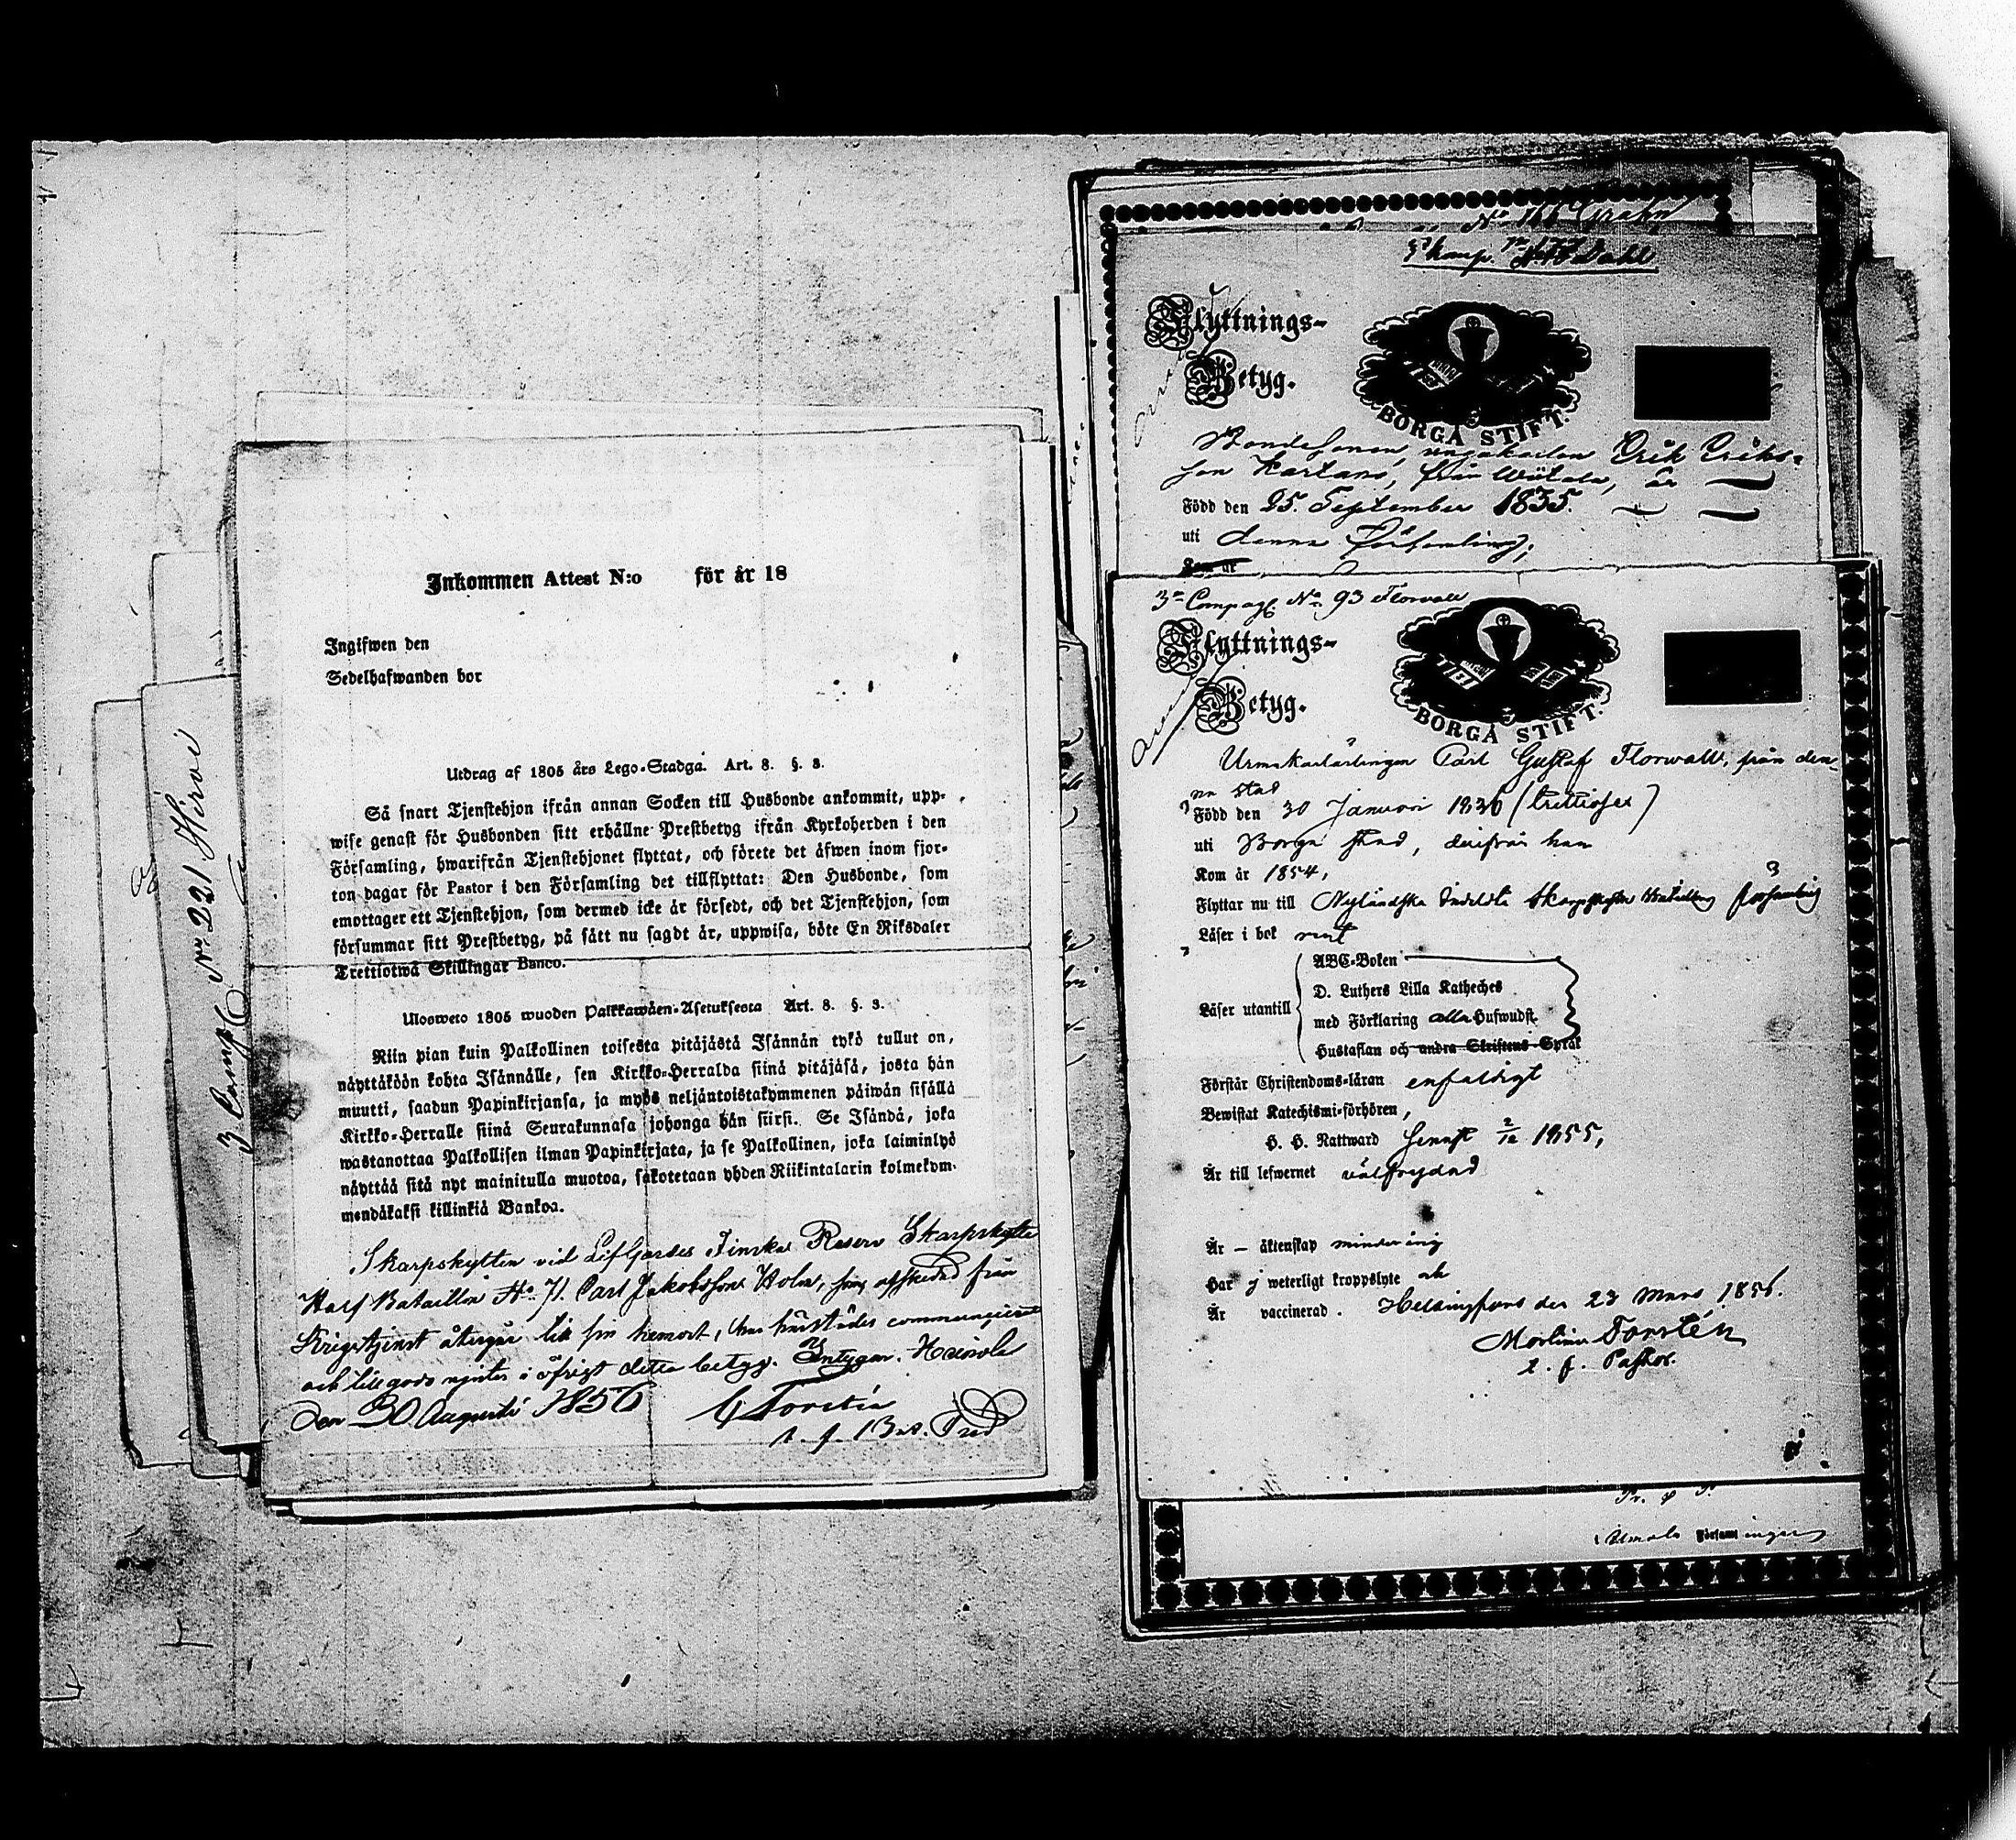 Inkommen Attest N:o för år 18
Ingifwen den
Sedelhafwanden bor
Utdrag af 1805 års Lego-Stadga. Art. 8. §. 3.
Så snart Tjenstehjon ifrån annan Socken till Husbonde ankommit, upp-
wise genast för Husbonden sitt erhållne Prestbetyg ifrån Kyrkoherden i den
Församling, hwarifrån Tjenstehjonet flyttat, och förete det äfwen inom fjor-
ton dagar för Pastor i den Församling det tillflyttat: Den Husbonde, som
emottager ett Tjenstehjon, som dermed icke är försedt, och det Tjenstehjon, som
försummar sitt Prestbetyg, på sätt nu sagdt är, uppwisa, böte En Riksdaler
Trettiotwå Skillingar Banco.
Ulosweto 1805 wuoden Palkkawäen-Asetuksesta Art. 8. §. 3.
Niin pian kuin Palkollinen toisesta pitäjästä Isännän tykö tullut on,
näyttäköön kohta Isännälle, sen Kirkko-Herralda siinä pitäjäsä, josta hän
muutti, saadun Papinkirjansa, ja myös neljäntoistakymmenen päiwän sisällä
Kirkko-Herralle siinä Seurakunnasa johonga hän siirsi. Se Isändä, joka
wastanottaa Palkollisen ilman Papinkirjata, ja se Palkollinen, joka laiminlyö
näyttää sitä nyt mainitulla muotoa, sakotetaan yhden Riikintalarin kolmekym-
mendäkaksi killinkiä Bankoa.
Skarpskytten vid LifGardes Finska Reserv Skarpskytte
Half Bataillon No 71. Carl Jakobsson Holm, som afskedad från
Krigstjenst återgår till sin hemort, har härstädes communicerat
och tillgodo njuter i öfrigt detta betyg. Intygar.
den 30 Augusti 1856 G Forstén
t. f. Bat. Pred
3 Comp. No 221 Hirvi
No 166 Grahn
Dahl
Flyttnings-
Betyg.
BORGÅ STIFT.
Bondesonen, ungkarlen Erik Eriks-
son Kartano, från
Född den 25. September 1835.
uti denna Församling;
Som är
3e Compag. No 93 Florwall
Flyttnings-
Betyg.
BORGÅ STIFT.
Urmakarlärlingen Carl Gustaf Florwall, från den-
na stad
Född den 30 Januari 1836 (trettiosex)
uti Borgå stad, derifrån han
Kom år 1854,
Flyttar nu till Nyländska Indelta Skarpskytte Bataillons församling
Läser i bok rent
Läser utantill
ABC-Boken
D. Luthers Lilla Katheches
med Förklaring alla Hufwudst.
Hustaflan och andra Skriftens Språk
Förstår Christendoms-läran enfaldigt
Bewistat Katechismi-förhören,
H. H. Nattward senast 2/12 1855,
Är till lefwernet välfrejdad
Är – äktenskap minderårig
Har ej weterligt kroppslyte och
Är vaccinerad. Helsingfors den 23 Mars 1856.
Forstén
t. f. Pastor.
Församlingen